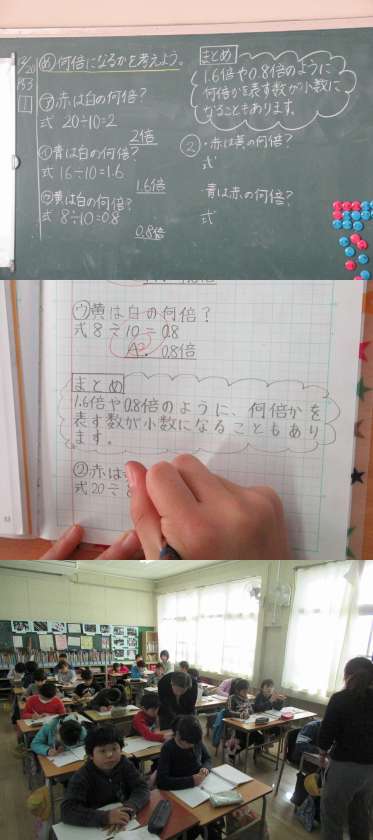 め 何倍になるかを考えよう。
P53
1
ア 赤は白の何倍?
式 20÷10=2
2倍
イ 青は白の何倍?
式 16÷10=1.6
1.6倍
ウ 黄は白の何倍?
式 8÷10=0.8
0.8倍
まとめ
1.6倍や0.8倍のように
何倍かを表す数が小数に
なることもあります。
② ・赤は黄の何倍?
式
青は赤の何倍?
式
ウ 黄は白の何倍?
式 8÷10=0.8
A. 0.8倍
まとめ
1.6倍や0.8倍のように、何倍かを
表す数が小数になることもあり
ます。
② 赤は
式 20÷8